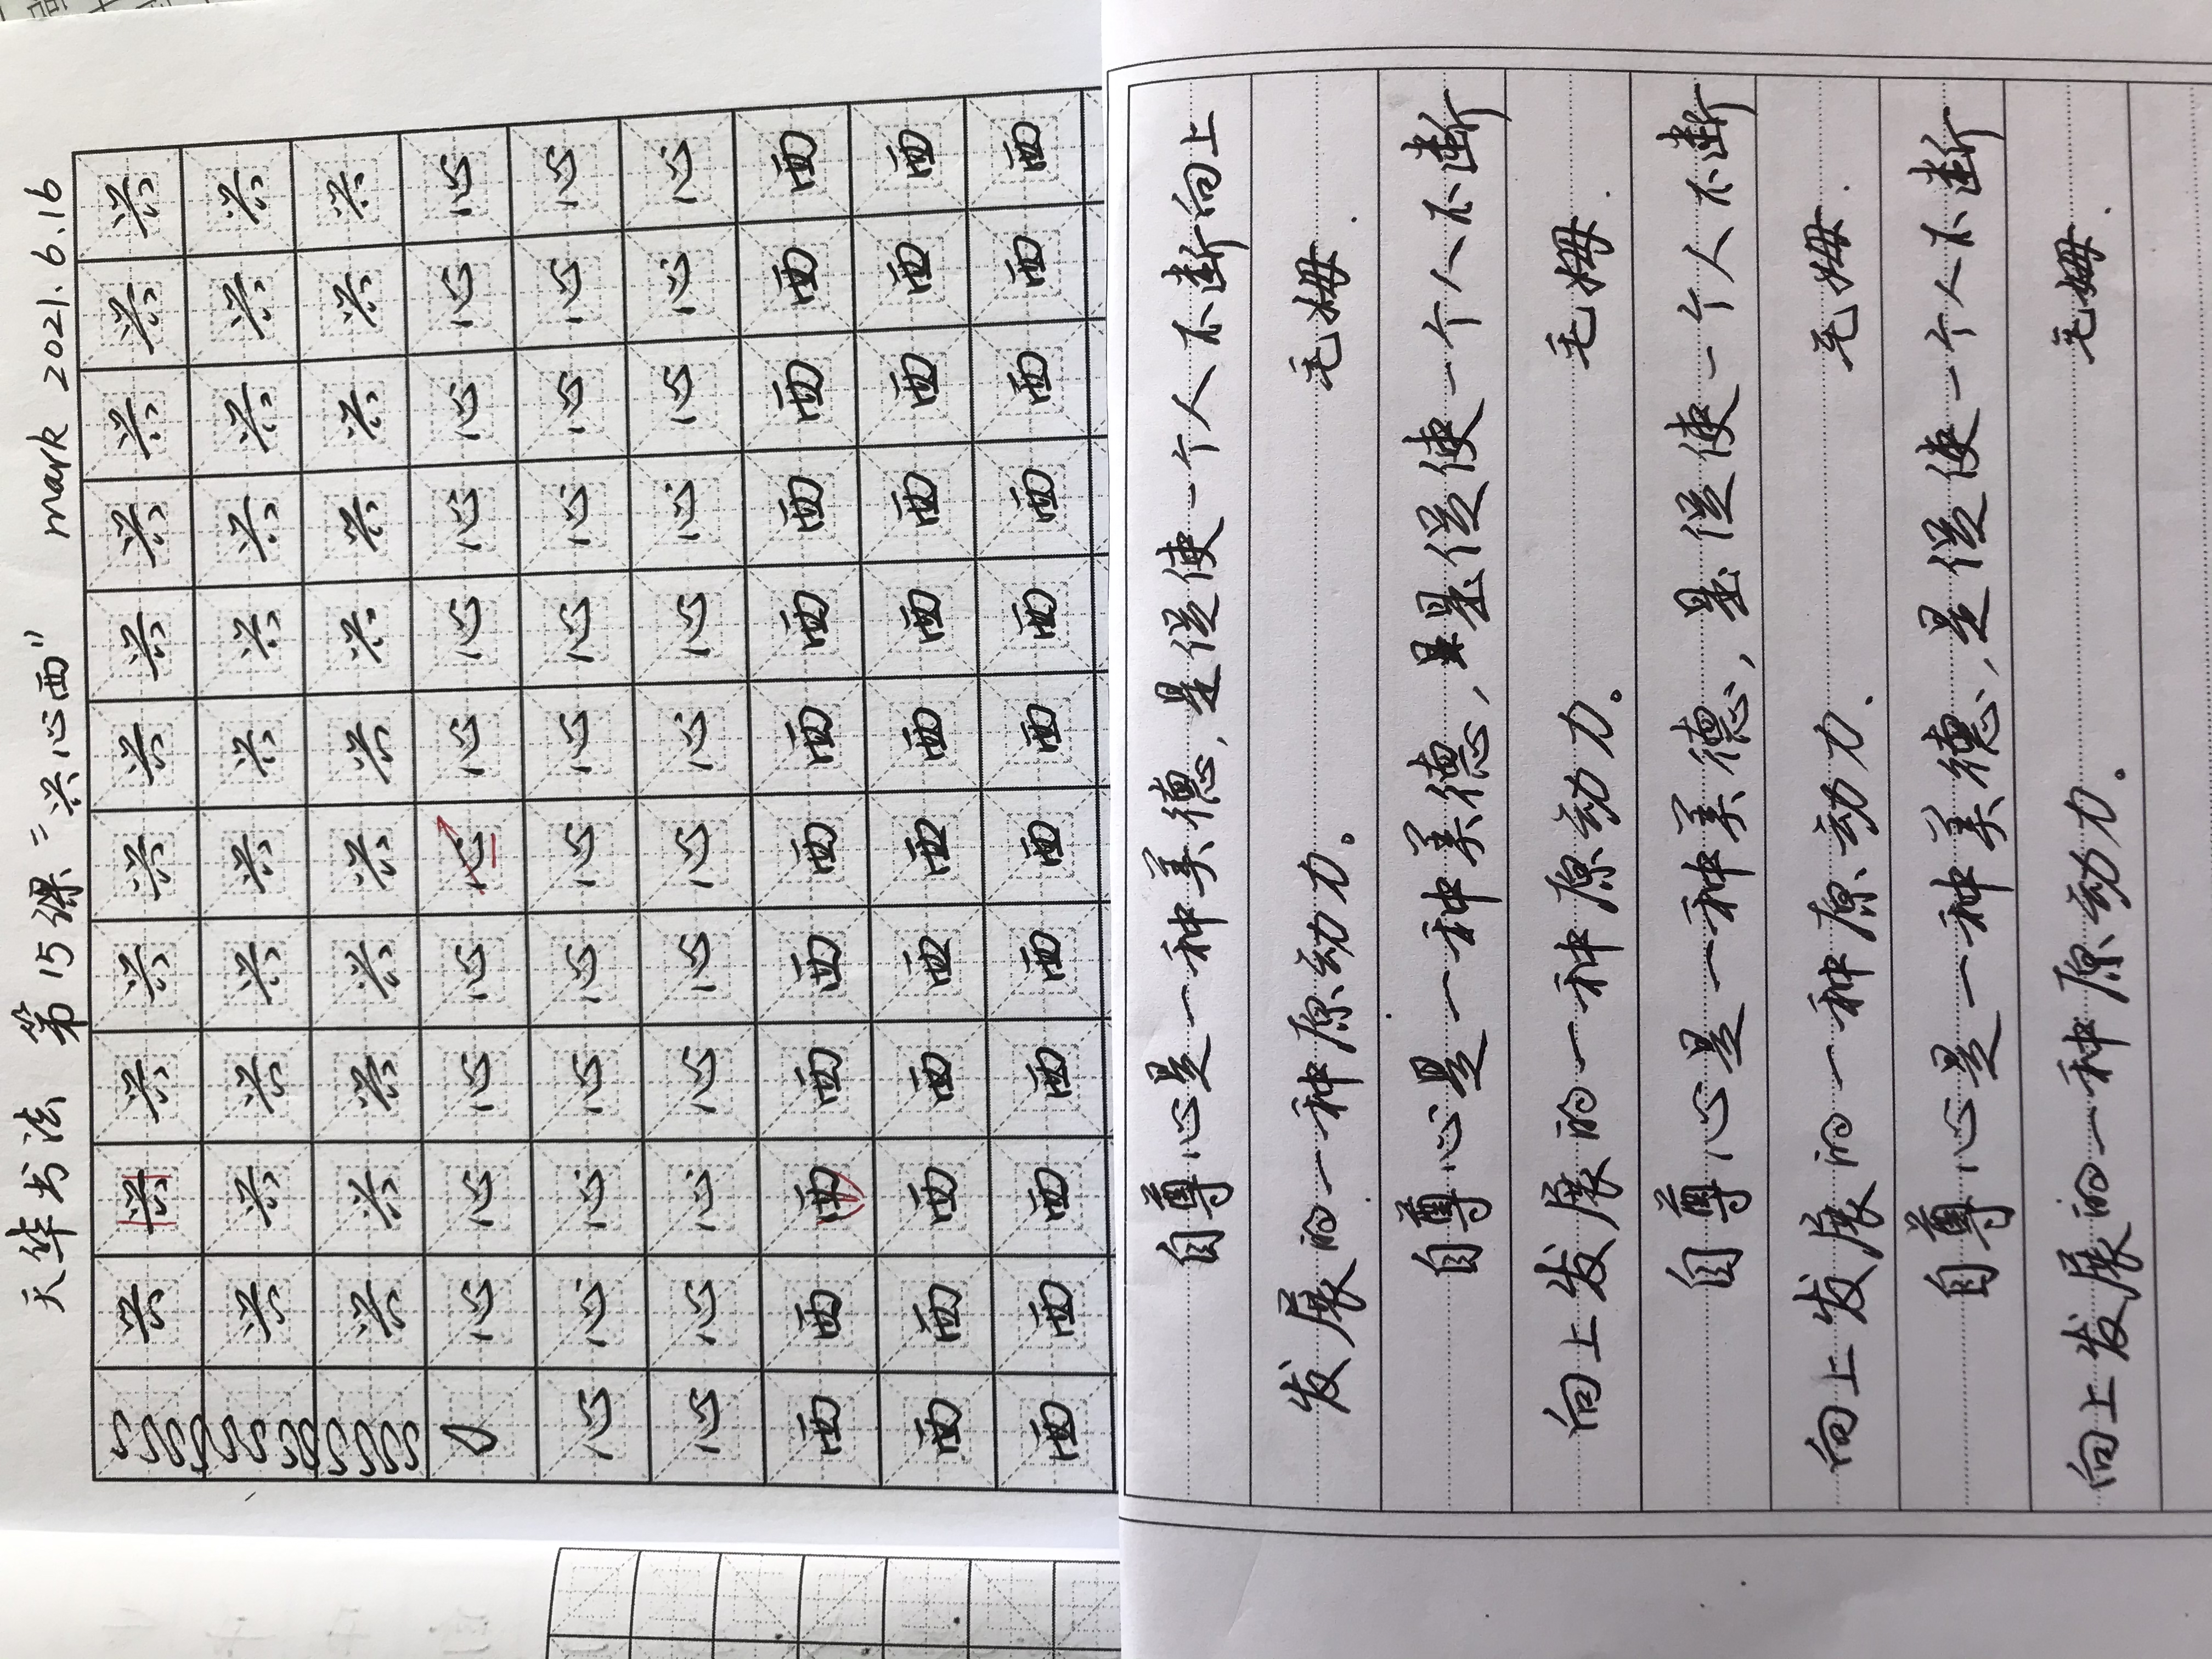 天华书法 第15课"兴心西" mark 2021.6.16
兴兴兴兴兴兴兴兴兴兴兴
兴兴兴兴兴兴兴兴兴兴兴
兴兴兴兴兴兴兴兴兴兴兴
心心心心心心心心心心心
心心心心心心心心心心心心
心心心心心心心心心心心心
西西西西西西西西西西西西
西西西西西西西西西西西西
西西西西西西西西西西西西
自尊心是一种美德,是促使一个人不断向上
发展的一种原动力。 毛姆.
自尊心是一种美德,是促使一个人不断
向上发展的一种原动力。 毛姆.
自尊心是一种美德,是促使一个人不断
向上发展的一种原动力. 毛姆.
自尊心是一种美德,是促使一个人不断
向上发展的一种原动力。 毛姆.